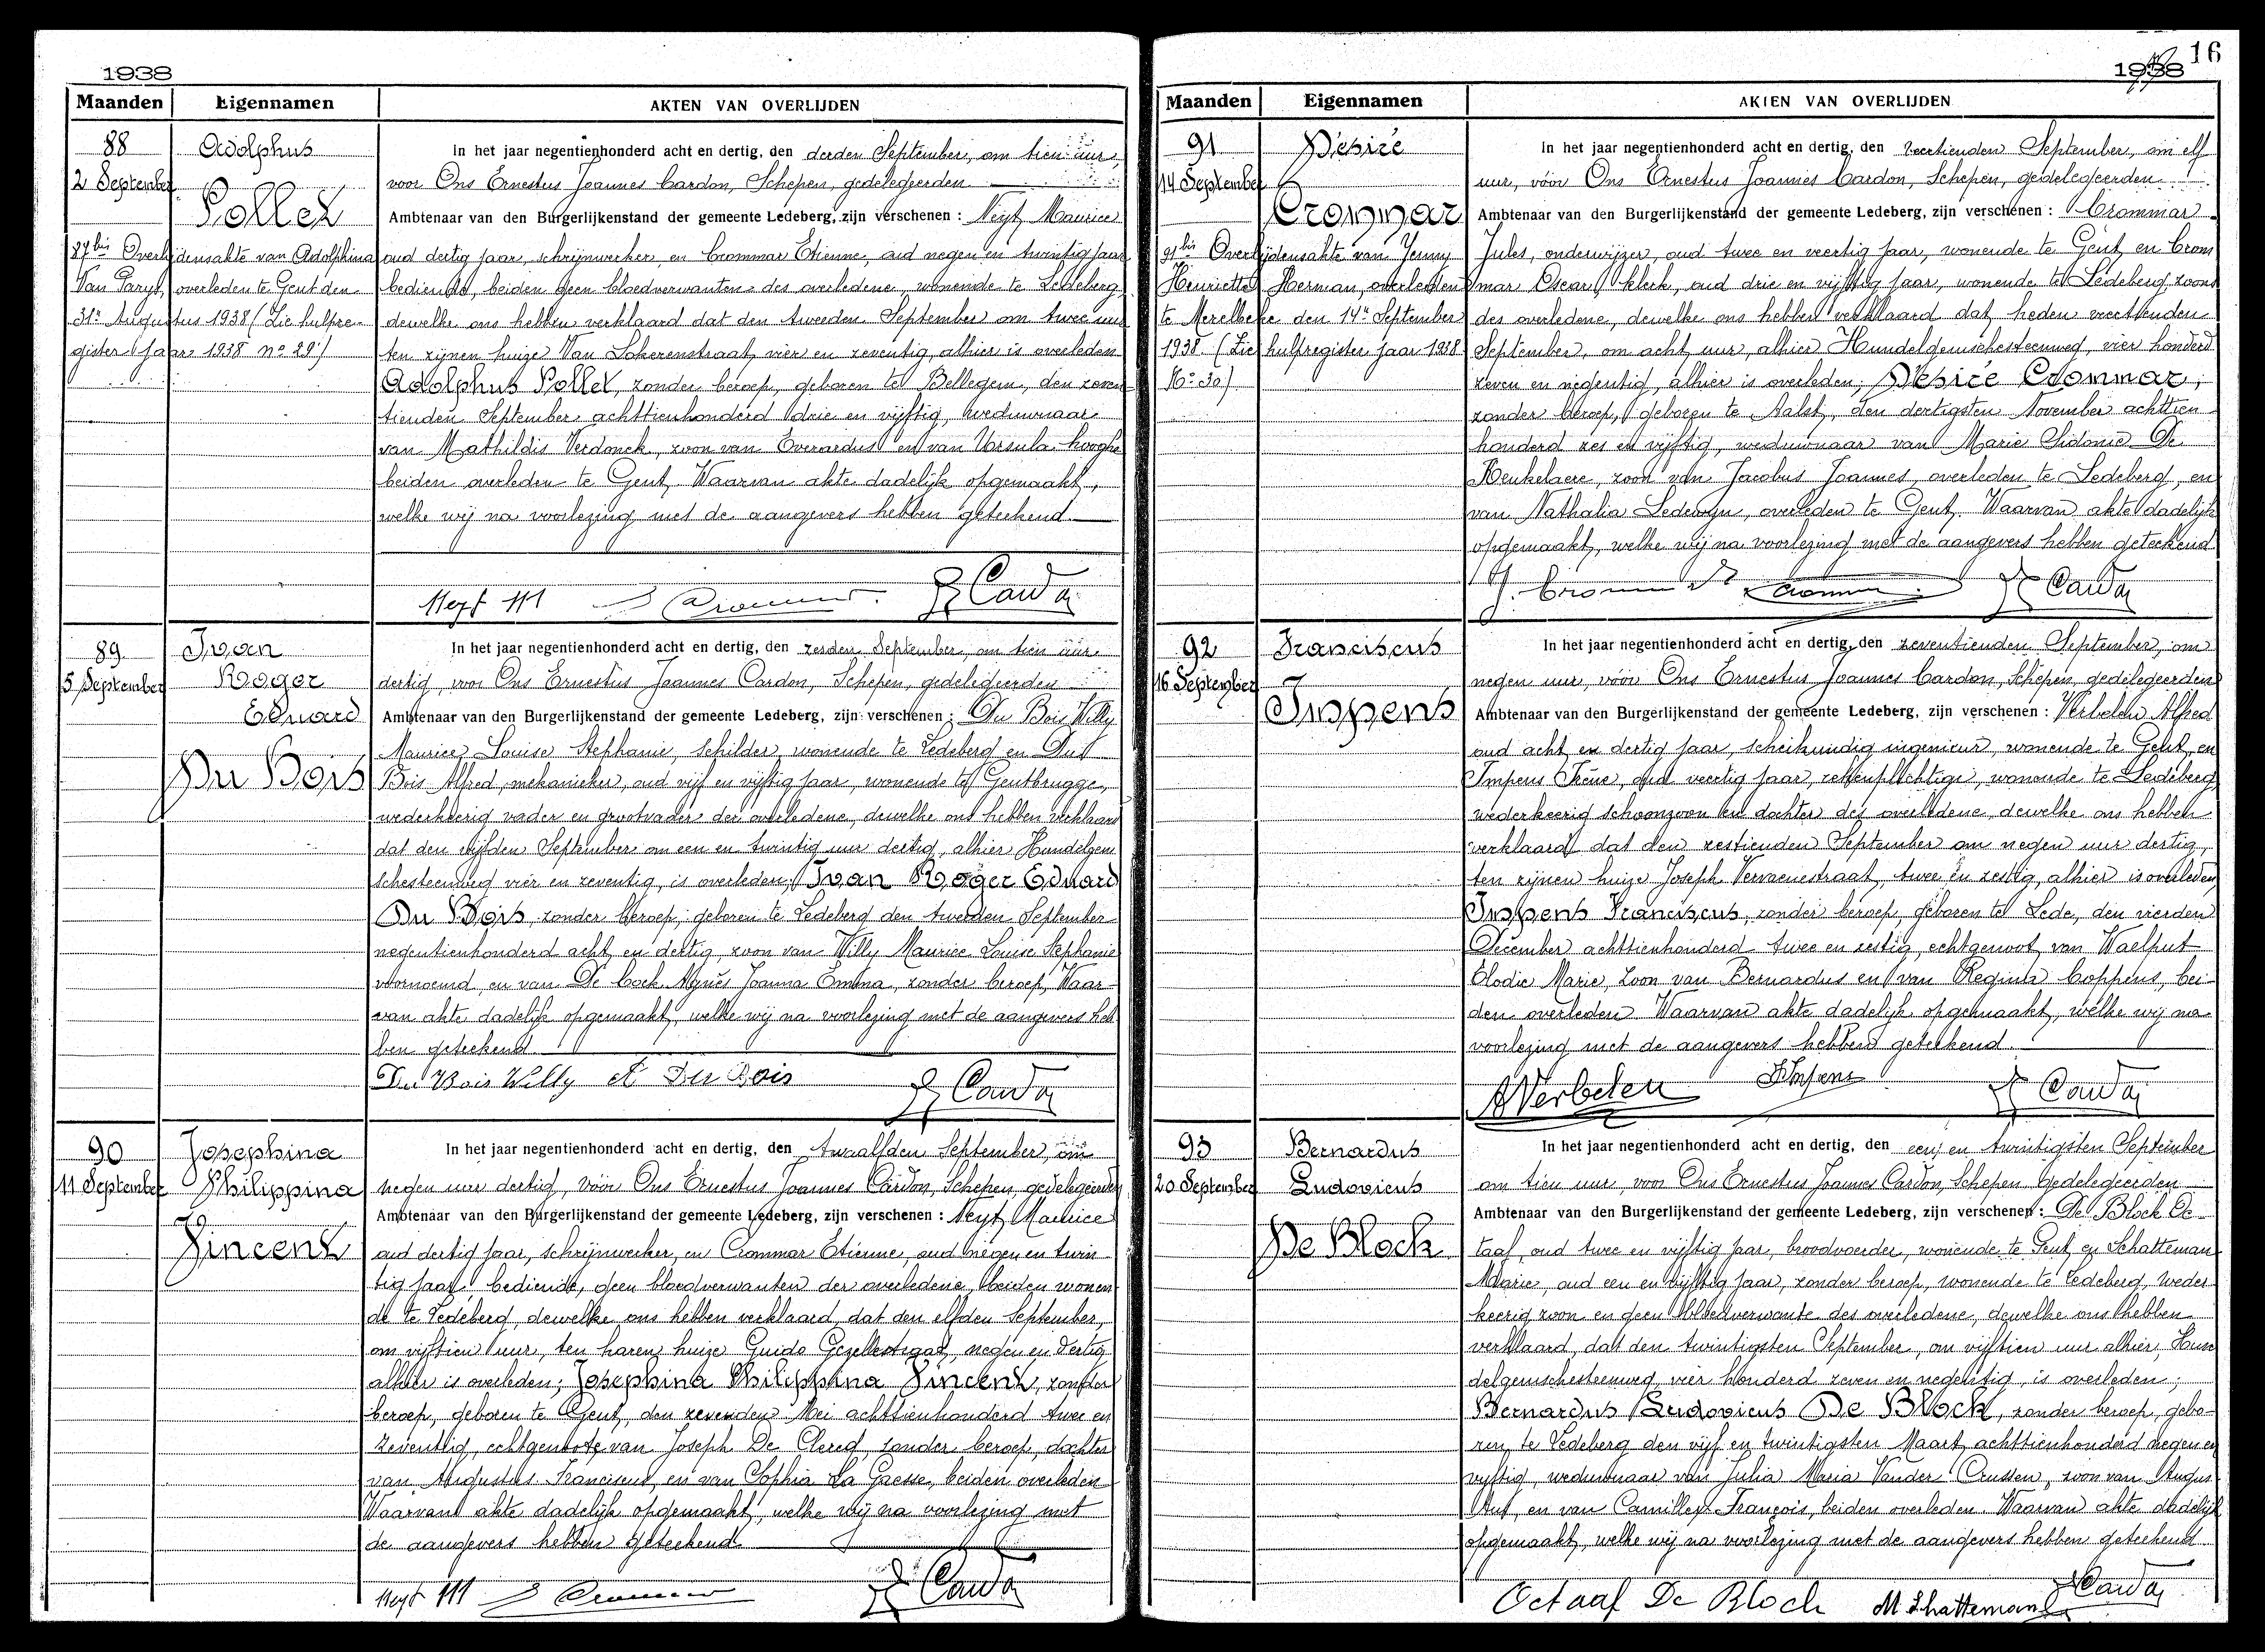 1938
Maanden Eigennamen AKTEN VAN OVERLIJDEN
88
2 September
Adolphus
Pollet
87bis Overlijdensakte van Adolphina
Van Paryt, overleden te Gent den
31n Augustus 1938 (Zie hulpre-
gister jaar 1938 no 29)
In het jaar negentienhonderd acht en dertig, den derden September, om tien uur,
voor Ons Ernestus Joannes Cardon, Schepen, gedelegeerden
Ambtenaar van den Burgerlijkenstand der gemeente Ledeberg, zijn verschenen : Neyt Maurice
oud dertig jaar, schrijnwerker, en Crommar Etienne, oud negen en twintig jaar
bediende, beiden geen bloedverwanten des overledene, wonende te Ledeberg,
dewelke ons hebben verklaard dat den tweeden September om twee uur
ten zijnen huize Van Lokerenstraat, vier en zeventig, alhier is overleden
Adolphus Pollet, zonder beroep, geboren te Bellegem, den zeven-
tienden September achttienhonderd drie en vijftig, weduwnaar
van Mathildis Verdonck, zoon van Everardus en van Ursula Hooghe
beiden overleden te Gent. Waarvan akte dadelijk opgemaakt,
welke wij na voorlezing met de aangevers hebben geteekend.
Neyt M E Crommar E Cardon
89
5 September
Ivan
Roger
Eduard
Du Bois
In het jaar negentienhonderd acht en dertig, den zesden September, om tien uur
dertig, voor Ons Ernestus Joannes Cardon, Schepen, gedelegeerden
Ambtenaar van den Burgerlijkenstand der gemeente Ledeberg, zijn verschenen : Du Bois Willy
Maurice Louise Stephanie, schilder, wonende te Ledeberg en Du
Bois Alfred, mekanieker, oud vijf en vijftig jaar, wonende te Gentbrugge,
wederkeerig vader en grootvader der overledene, dewelke ons hebben verklaard
dat den vijfden September om een en twintig uur dertig, alhier Hundelgem
schesteenweg vier en zeventig, is overleden; Ivan Roger Eduard
Du Bois, zonder beroep, geboren te Ledeberg den tweeden September
negentienhonderd acht en dertig, zoon van Willy Maurice Louise Stephanie
voornoemd, en van De Cock Agnes Joanna Emma, zonder beroep, Waar-
van akte dadelijk opgemaakt, welke wij na voorlezing met de aangevers heb
ben geteekend
Du Bois Willy A Du Bois E Cardon
90
11 September
Josephina
Philippina
Vincent
In het jaar negentienhonderd acht en dertig, den twaalfden September, om
negen uur dertig, vóór Ons Ernestus Joannes Cardon, Schepen, gedelegeerden
Ambtenaar van den Burgerlijkenstand der gemeente Ledeberg, zijn verschenen : Neyt Maurice
oud dertig jaar, schrijnwerker, en Crommar Etienne, oud negen en twin-
tig jaar, bediende, geen bloedverwanten der overledene, beiden wonen-
de te Ledeberg, dewelke ons hebben verklaard, dat den elfden September,
om vijftien uur, ten haren huize Guido Gezellestraat, negen en dertig
alhier is overleden; Josephina Philippina Vincent, zonder
beroep, geboren te Gent, den zevenden Mei achttienhonderd twee en
zeventig, echtgenoote van Joseph De Clercq, zonder beroep, dochter
van Augustus Franciscus, en van Sophia La Gaesse, beiden overleden
Waarvan akte dadelijk opgemaakt, welke wij na voorlezing met
de aangevers hebben geteekend
Neyt M E Crommar E Cardon
16
1938
Maanden Eigennamen AKTEN VAN OVERLIJDEN
91
14 September
Désiré
Crommar
91bis Overlijdensakte van Jenny
Henriette Herman, overleden
te Merelbeke den 14n September
1938. (Zie hulpregister jaar 1938
No 30)
In het jaar negentienhonderd acht en dertig, den veertienden September, om elf
uur, vóór Ons Ernestus Joannes Cardon, Schepen, gedelegeerden
Ambtenaar van den Burgerlijkenstand der gemeente Ledeberg, zijn verschenen : Crommar
Jules, onderwijzer, oud twee en veertig jaar, wonende te Gent, en Crom
mar Oscar, klerk, oud drie en vijftig jaar, wonende te Ledeberg, zoons
des overledene, dewelke ons hebben verklaard dat, heden veertienden
September, om acht uur, alhier Hundelgemschesteenweg, vier honderd
zeven en negentig, alhier is overleden; Désiré Crommar,
zonder beroep, geboren te Aalst, den dertigsten November achttien
honderd zes en vijftig, weduwnaar van Marie Sidonie De
Keukelaere, zoon van Jacobus Joannes, overleden te Ledeberg, en
van Nathalia Ledewyn, overleden te Gent. Waarvan akte dadelijk
opgemaakt, welke wij na voorlezing met de aangevers hebben geteekend
J. Crommar Crommar E Cardon
92
16 September
Franciscus
Impens
In het jaar negentienhonderd acht en dertig, den zeventienden September, om
negen uur, vóór Ons Ernestus Joannes Cardon, Schepen, gedelegeerden
Ambtenaar van den Burgerlijkenstand der gemeente Ledeberg, zijn verschenen : Verbelen Alfred
oud acht en dertig jaar, scheikundig ingenieur, wonende te Gent, en
Impens Irène, oud veertig jaar, ziekenplichtige, wonende te Ledeberg
wederkeerig schoonzoon en dochter des overledene, dewelke ons hebben
verklaard dat den zestienden September om negen uur dertig,
ten zijnen huize Joseph Vervaenestraat, twee en zestig, alhier is overleden
Impens Franciscus, zonder beroep, geboren te Lede, den vierden
December achttienhonderd twee en zestig, echtgenoot van Waelput
Elodie Marie, zoon van Bernardus en van Regina Coppens, bei-
den overleden. Waarvan akte dadelijk opgemaakt, welke wij na
voorlezing met de aangevers hebben geteekend.
A Verbelen I Impens E Cardon
93
20 September
Bernardus
Ludovicus
De Block
In het jaar negentienhonderd acht en dertig, den een en twintigsten September
om tien uur, voor Ons Ernestus Joannes Cardon, Schepen Gedelegeerden
Ambtenaar van den Burgerlijkenstand der gemeente Ledeberg, zijn verschenen : De Block Oc-
taaf, oud twee en vijftig jaar, broodvoerder, wonende te Gent en Schatteman
Marie, oud een en vijftig jaar, zonder beroep, wonende te Ledeberg, weder
keerig zoon en geen bloedverwante des overledene, dewelke ons hebben
verklaard, dat den twintigsten September, om vijftien uur alhier, Hun-
delgemschesteenweg, vier honderd zeven en negentig, is overleden;
Bernardus Ludovicus De Block, zonder beroep, gebo-
ren te Ledeberg den vijf en twintigsten Maart achttienhonderd negen en
vijftig, weduwnaar van Julia Maria Vander Crussen, zoon van Augus
tus, en van Camille François, beiden overleden. Waarvan akte dadelijk
opgemaakt, welke wij na voorlezing met de aangevers hebben geteekend
Octaaf De Block M Schatteman E Cardon